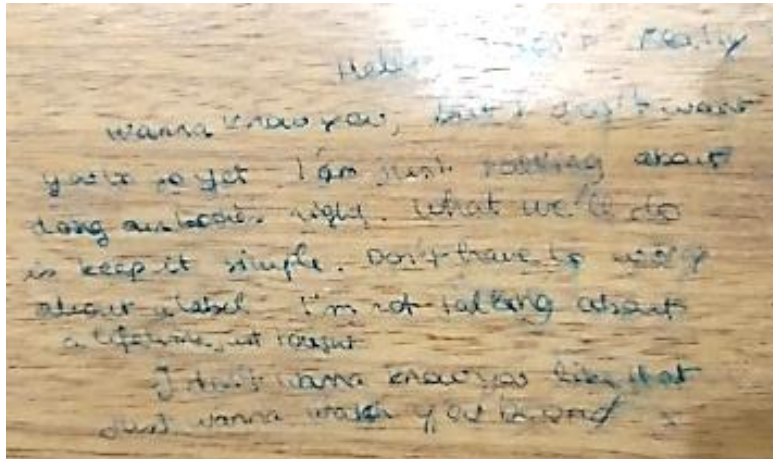 Hello really
wanna know you, but I don't want
you to go yet I am just talking about
doing our bodies right. What we'll do
is keep it simple. Don't have to worry
about a label I'm not talking about
a lifetime, just tonight
I don't wanna know you like that
Just wanna watch you